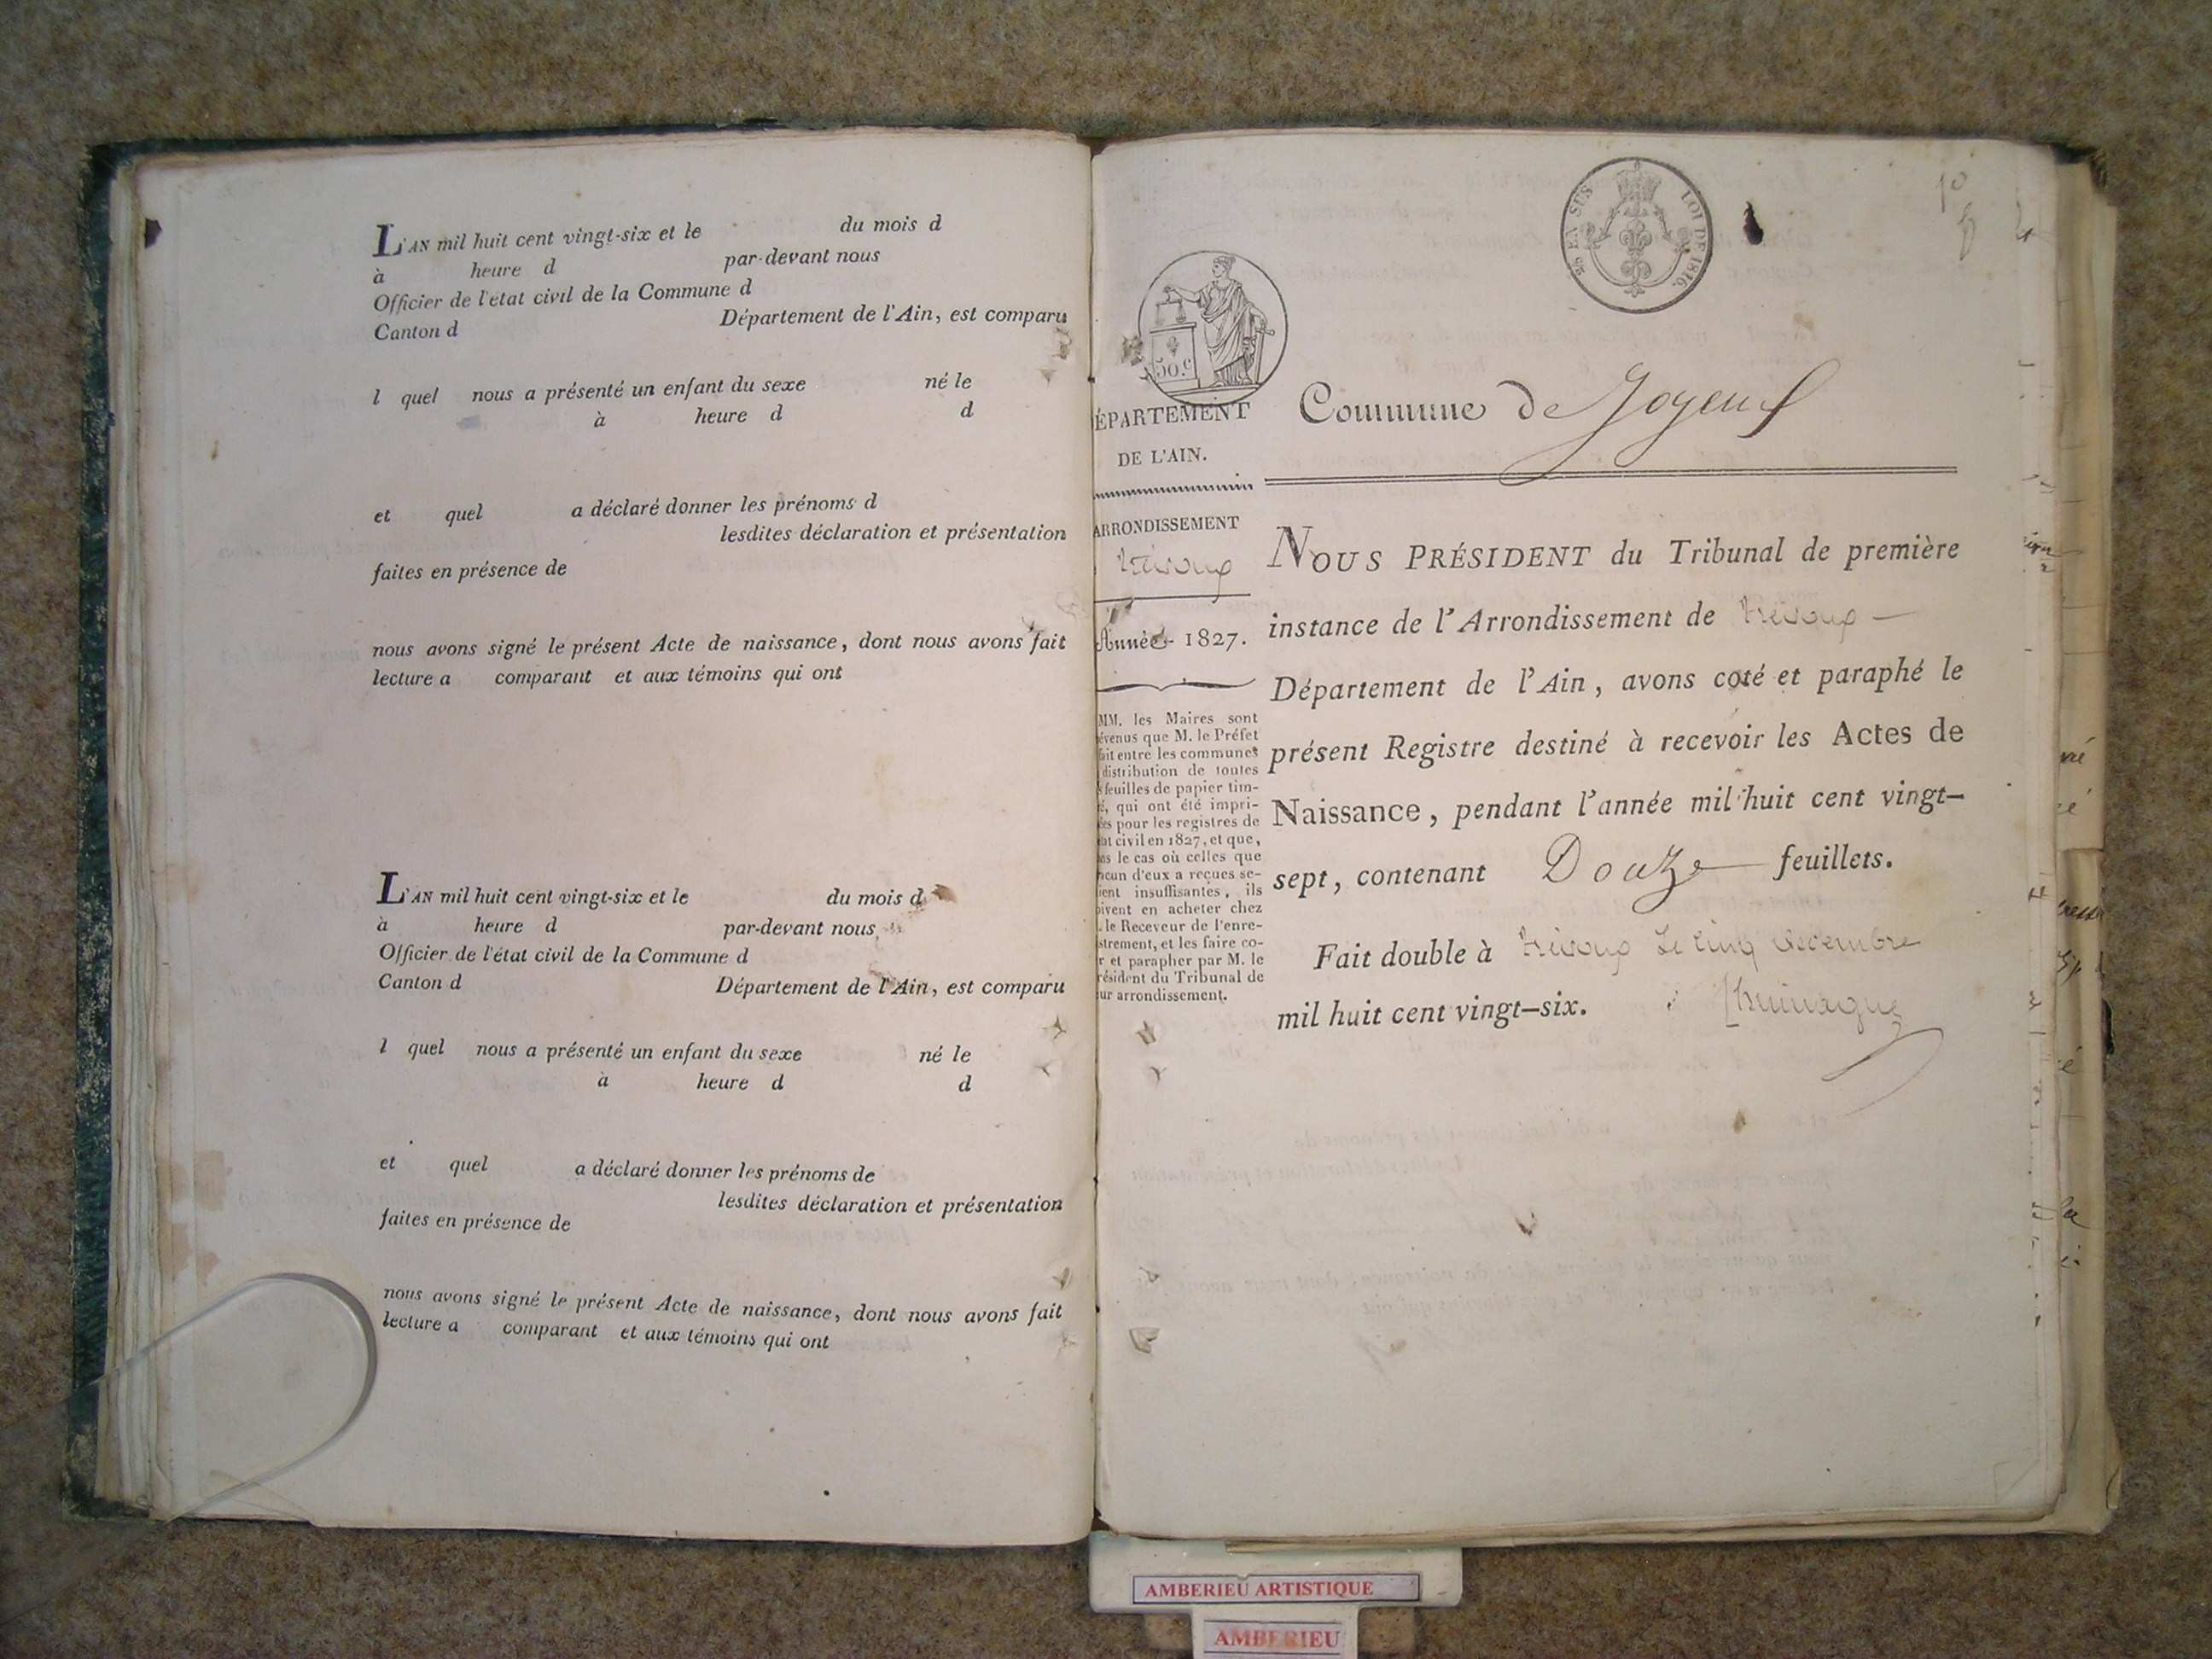 L'AN mil huit cent vingt-six et le du mois d
à heure d par-devant nous
Officier de l'état civil de la Commune d
Canton d Département de l'Ain, est comparu
l quel nous a présenté un enfant du sexe né le
à heure d d
et quel a déclaré donner les prénoms d
lesdites déclaration et présentation
faites en présence de
nous avons signé le présent Acte de naissance, dont nous avons fait
lecture a comparant et aux témoins qui ont
L'AN mil huit cent vingt-six et le du mois d
à heure d par-devant nous
Officier de l'état civil de la Commune d
Canton d Département de l'Ain, est comparu
l quel nous a présenté un enfant du sexe né le
à heure d d
et quel a déclaré donner les prénoms de
lesdites déclaration et présentation
faites en présence de
nous avons signé le présent Acte de naissance, dont nous avons fait
lecture a comparant et aux témoins qui ont
EN SES
LOI DE 1816.
50.c
ÉPARTEMENT
DE L'AIN.
ARRONDISSEMENT
trévoux
Année 1827.
MM. les Maires sont
évenus que M. le Préfet
ait entre les communes
distribution de toutes
s feuilles de papier tim-
é, qui ont été impri-
es pour les registres de
at civil en 1827, et que,
ns le cas où celles que
acun d'eux a reçues se-
ient insuffisantes, ils
oivent en acheter chez
. le Receveur de l'enre-
strement, et les faire co-
r et parapher par M. le
résident du Tribunal de
ur arrondissement.
Commune de Joyeux
NOUS PRÉSIDENT du Tribunal de première
instance de l'Arrondissement de trévoux
Département de l'Ain, avons coté et paraphé le
présent Registre destiné à recevoir les Actes de
Naissance, pendant l'année mil huit cent vingt-
sept, contenant Douze feuillets.
Fait double à trévoux Le cinq décembre
mil huit cent vingt-six.
AMBERIEU ARTISTIQUE
AMBERIEU